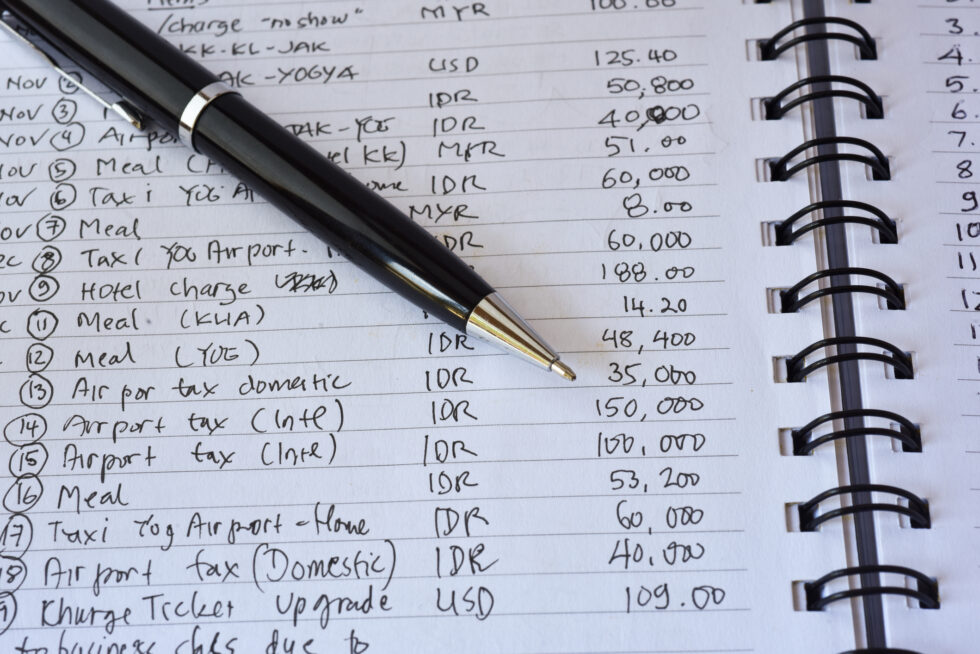 /charge "no show" MYR 100.00
KK-KL-JAK
AK-YOGYA USD 125.40
Nov ② IDR 50,800
Nov ③ IDR 40,000
Nov ④ Airpo TAK-YOG MYR 51.00
Nov ⑤ Meal (H tel KK) IDR 60,000
⑥ Taxi YOG Ai ome MYR 8.00
Nov ⑦ Meal IDR 60,000
ec ⑧ Taxi YOG Airport- 188.00
ov ⑨ Hotel charge 14.20
⑪ Meal (KLIA) IDR 48,400
⑫ Meal (YOG) IDR 35,000
⑬ Air por tax domestic IDR 150,000
⑭ Airport tax (Intl) IDR 100,000
⑮ Airport tax (Intl) IDR 53,200
⑯ Meal IDR 60,000
17) Taxi Yog Airport-Home IDR 40,000
18) Airport tax (Domestic) USD 109.00
9) Kharge Ticket upgrade
to business class due to
3.
4.
5.
6.
7.
8
9
10
11
12